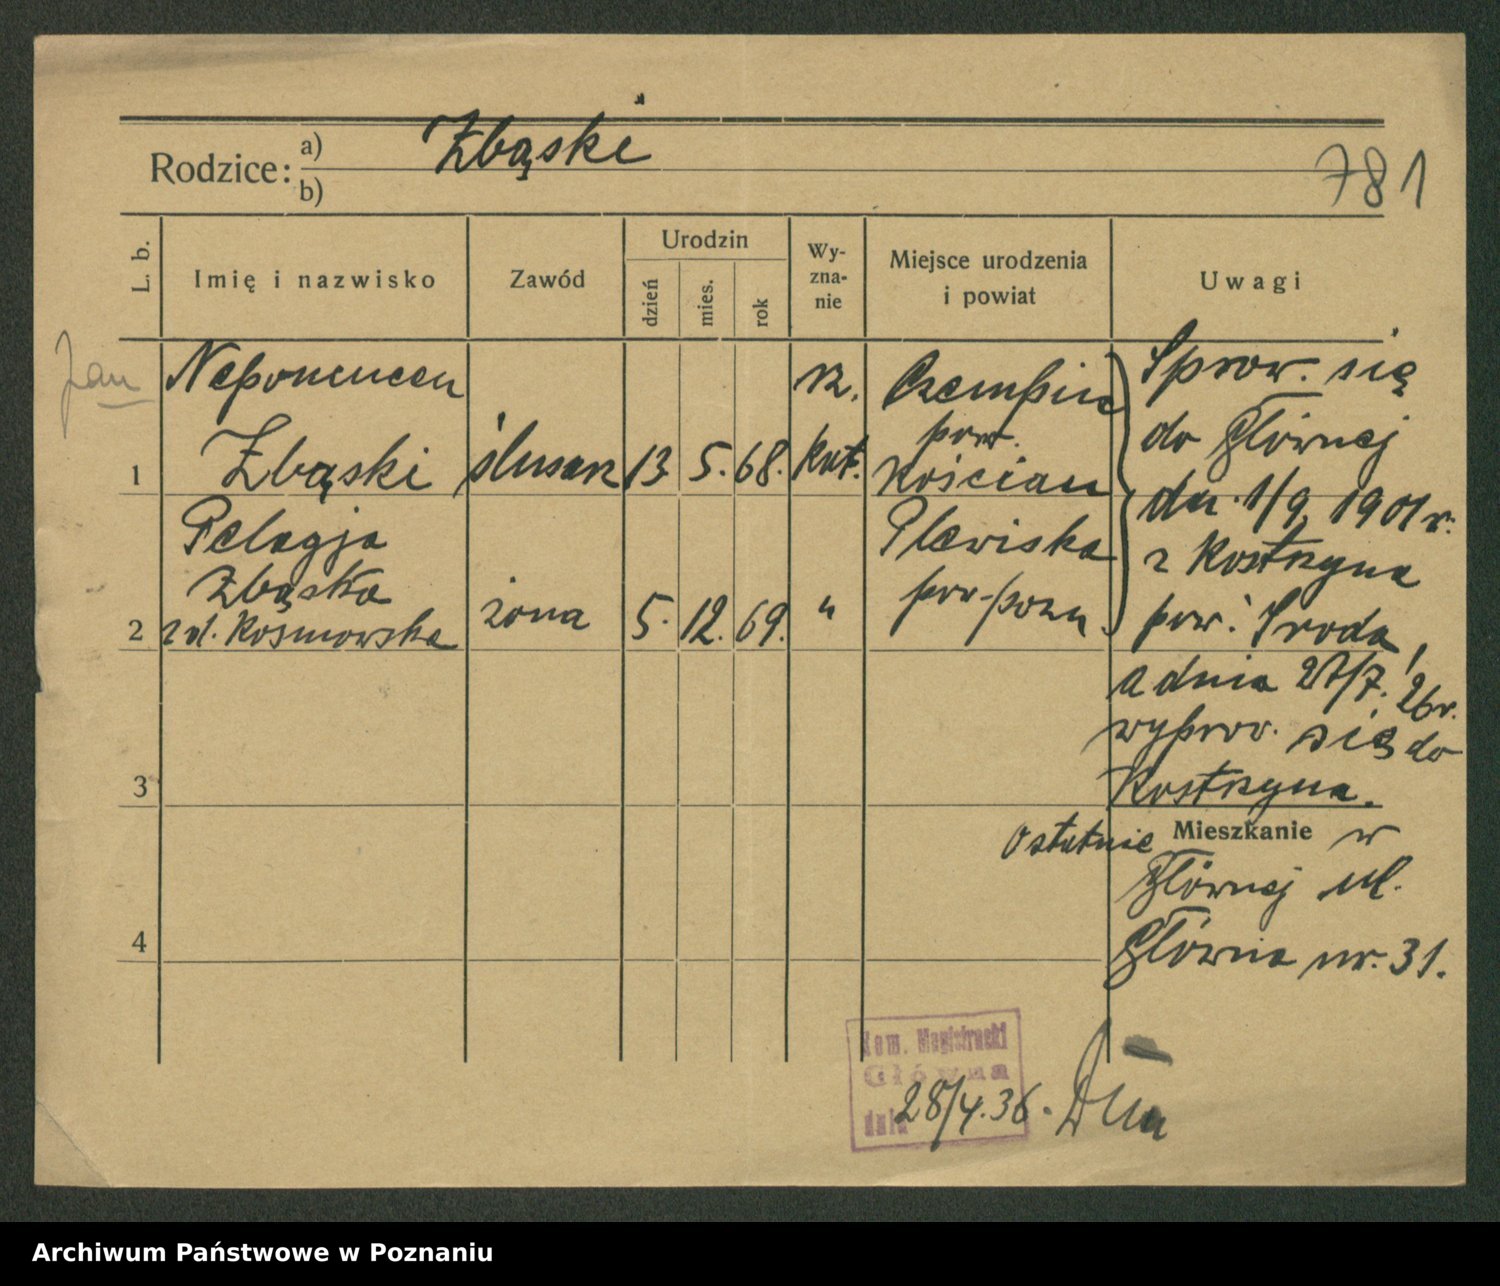 Rodzice: a) Zbąski
b)
781
L. b.
Imię i nazwisko
Zawód
Urodzin
dzień
mies.
rok
Wy-
zna-
nie
Miejsce urodzenia
i powiat
Uwagi
Jan Nepomucen
1 Zbąski ślusarz 13 5. 68. rz.
kat.
Czempiń
pow.
Kościan
Pelagja
Zbąska
2 zd. Kosmowska żona 5. 12. 69. "
Plewiska
pow. pozn
Sprow. się
do Głównej
dn. 1/9. 1901 r.
z Kostrzyna
pow. Środa,
a dnia 27/7. 26 r.
wyprow. się do
Kostrzyna.
3
Ostatnie Mieszkanie w
Głównej ul.
Główna nr. 31.
4
Kom. Magistracki
Główna
dnia 28/4.36.
Archiwum Państwowe w Poznaniu